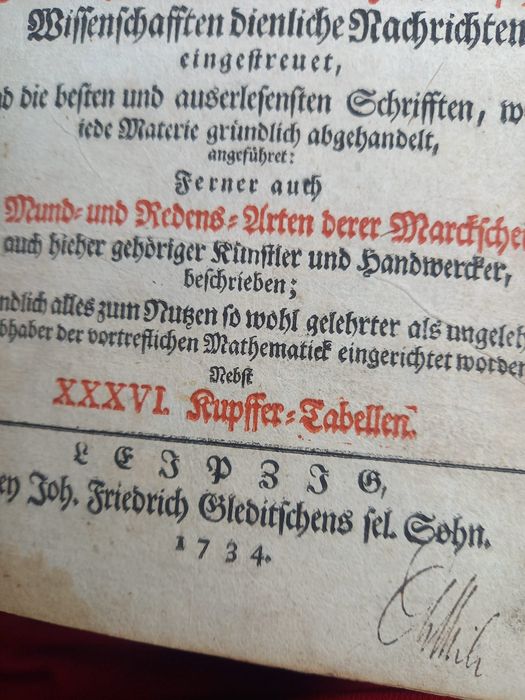 Wissenschafften dienliche Nachrichten
eingestreuet,
die besten und auserlesensten Schrifften,
iede Materie gründlich abgehandelt,
angeführet:
Ferner auch
Mund- und Redens-Arten derer Marckschei
auch hieher gehöriger Künstler und Handwercker,
beschrieben;
ndlich alles zum Nutzen so wohl gelehrter als ungeleh
bhaber der vortreflichen Mathematick eingerichtet worden
Nebst
XXXVI. Kupffer-Tabellen.
LEIPZIG,
ey Joh. Friedrich Gleditschens sel. Sohn.
1734.